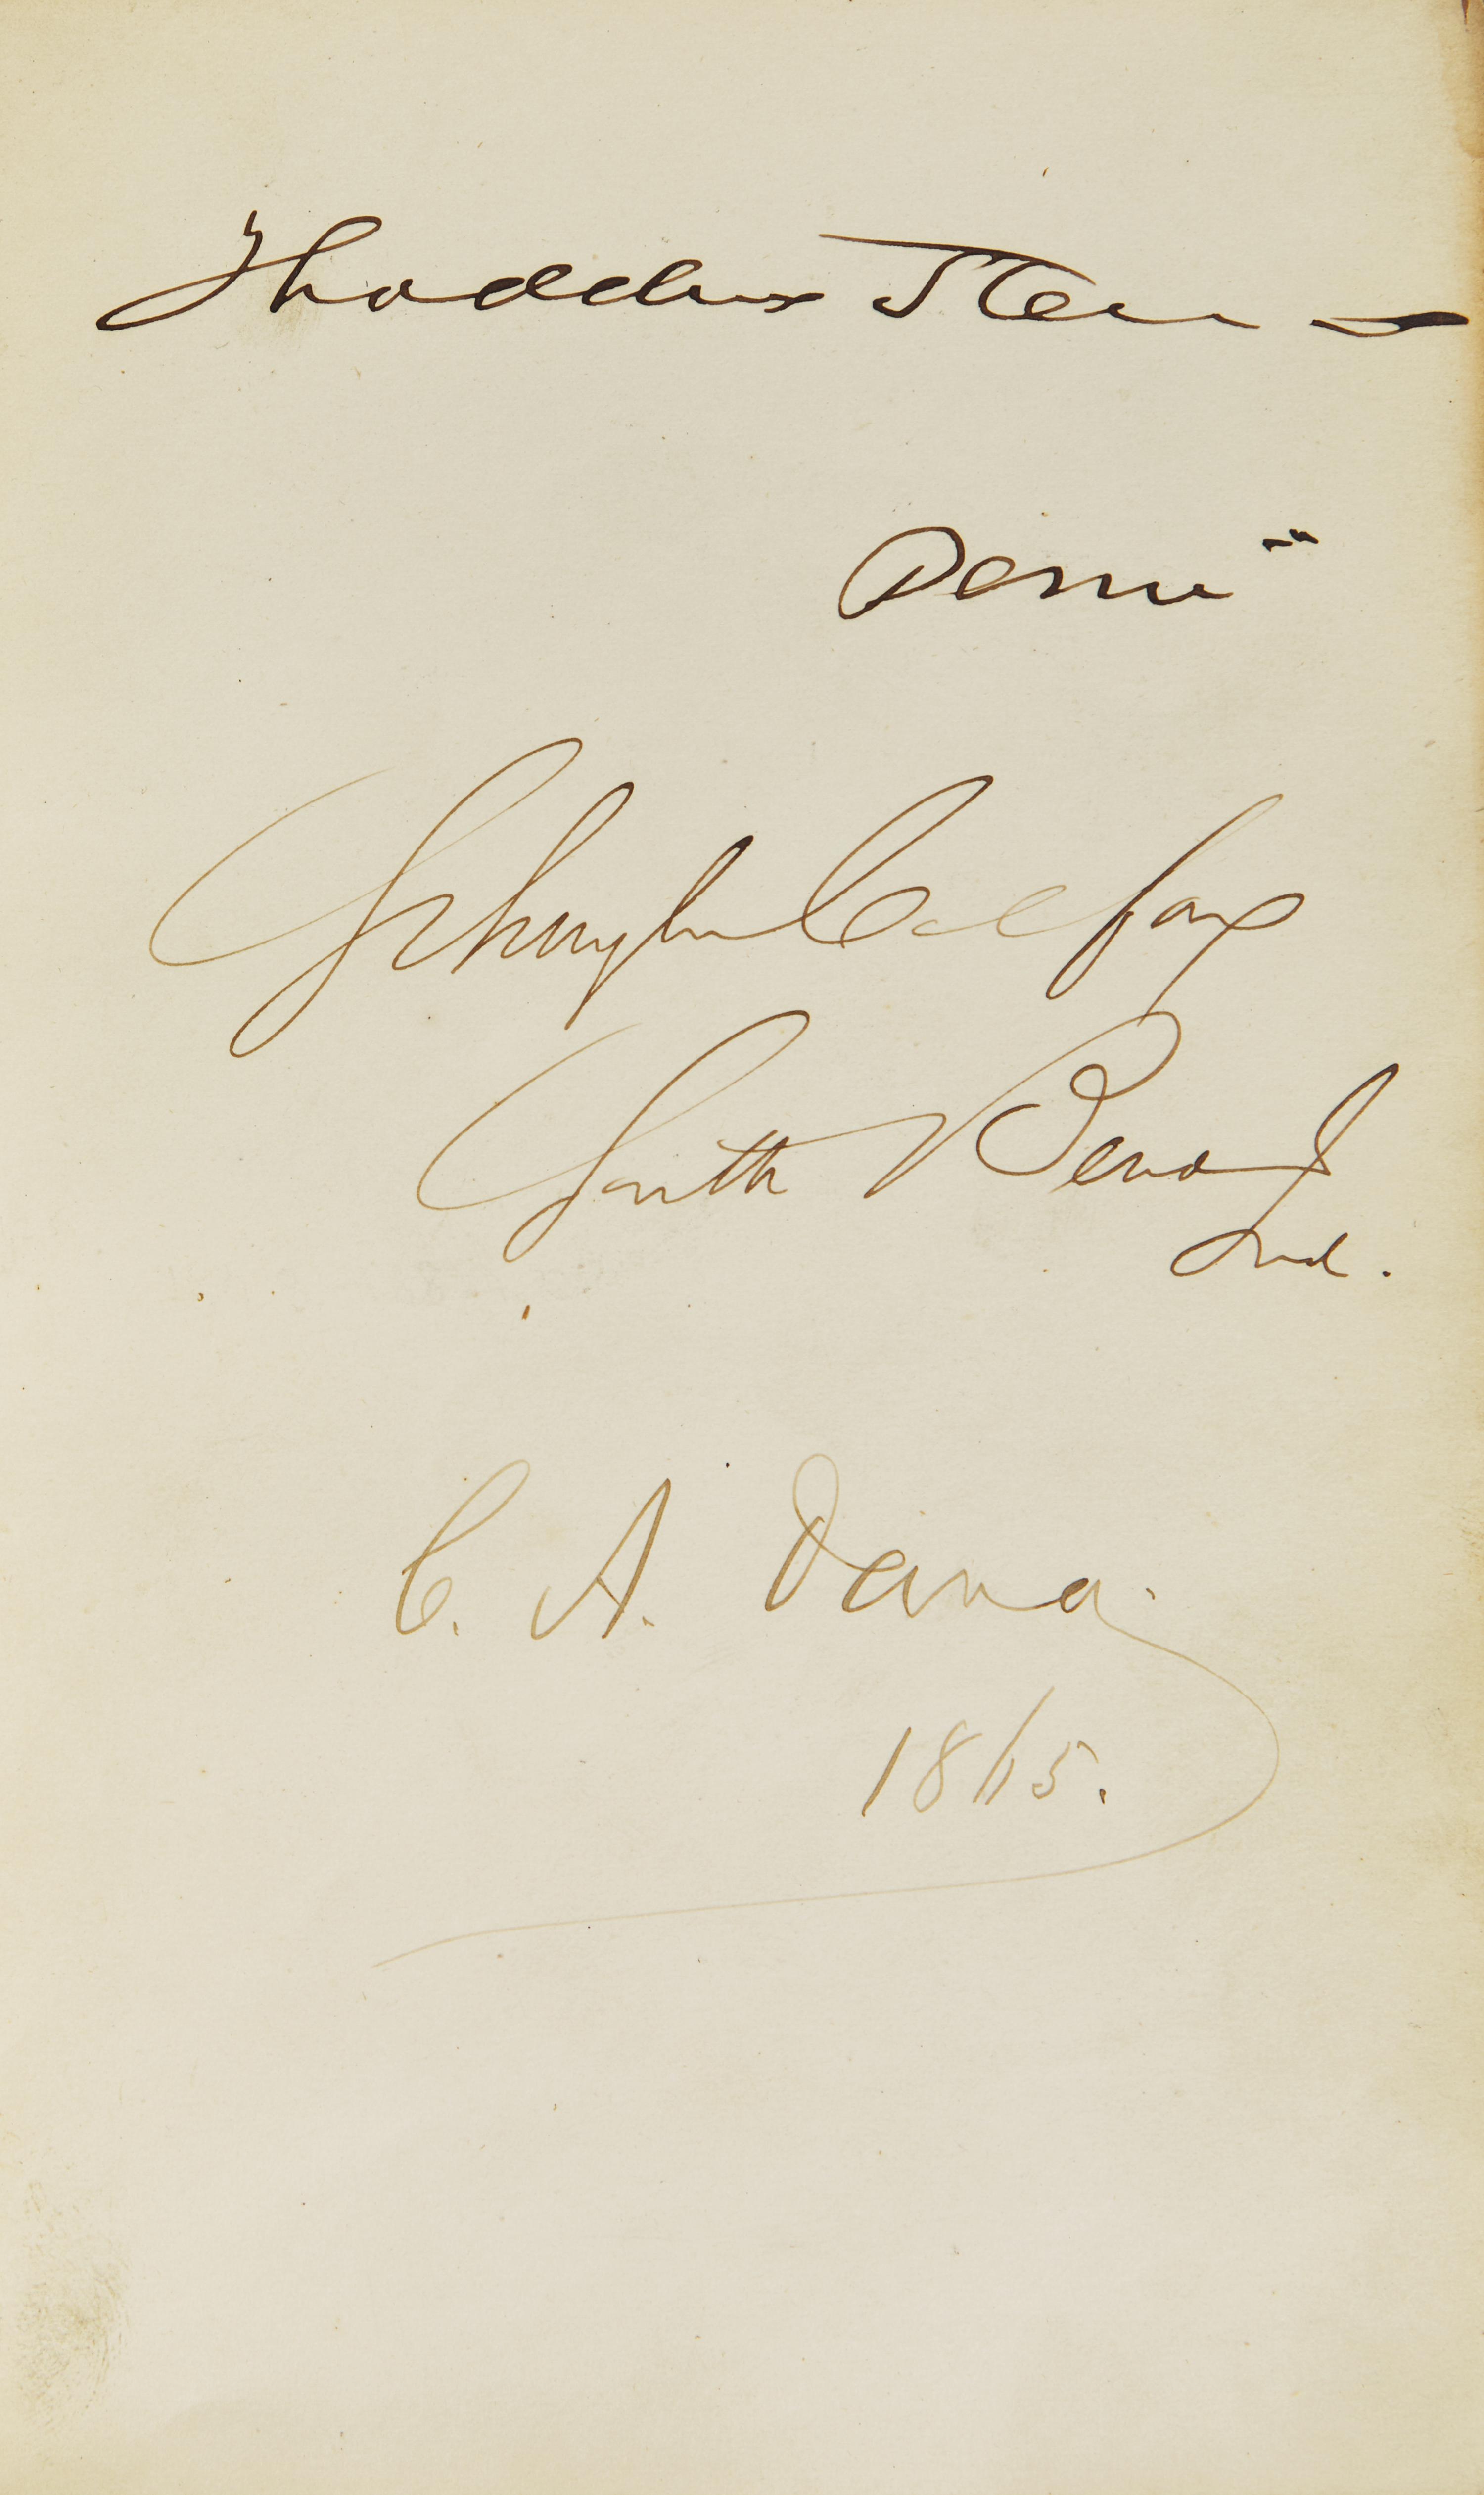 Thaddeus Stevens
Penna
Schuyler Colfax
South Bend
Ind.
C. A. Dana.
1865.